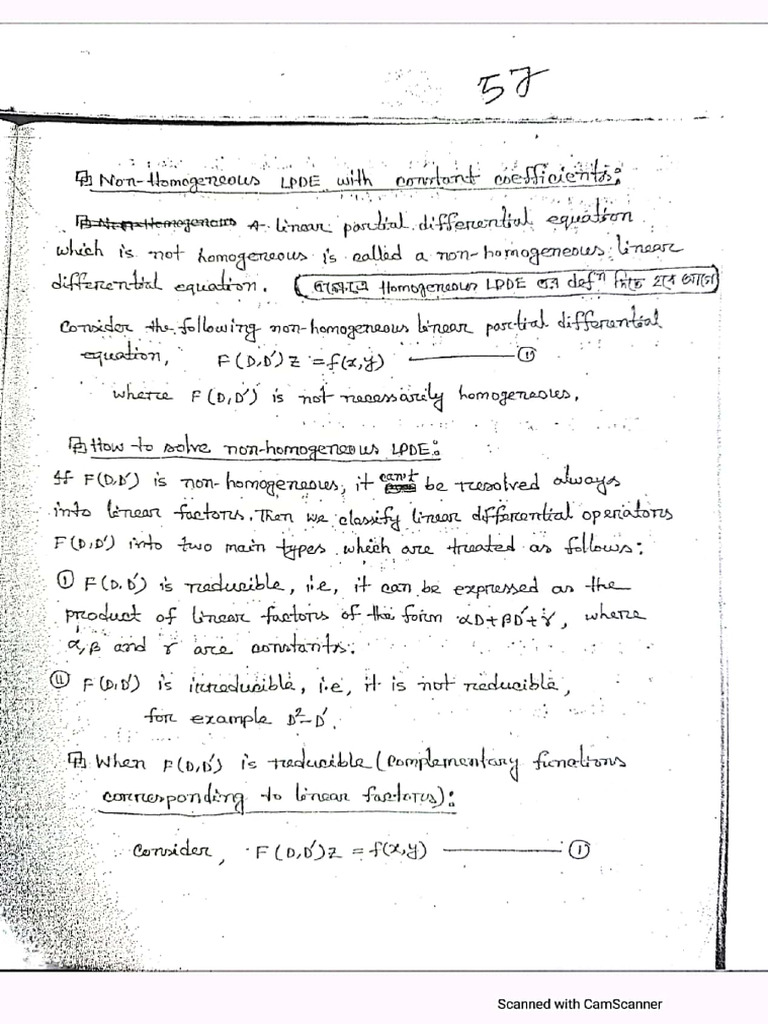 57
Non-Homogeneous LPDE with constant coefficients:
A linear partial differential equation
which is not homogeneous is called a non-homogeneous linear
differential equation. (এক্ষেত্রে Homogeneous LPDE এর defⁿ দিতে হবে আগে)
Consider the following non-homogeneous linear partial differential
equation, F(D,D')z = f(x,y) ——— ①
where F(D,D') is not necessarily homogeneous.
How to solve non-homogeneous LPDE:
If F(D,D') is non-homogeneous, it can't be resolved always
into linear factors. Then we classify linear differential operators
F(D,D') into two main types which are treated as follows:
Ⓘ F(D,D') is reducible, i.e, it can be expressed as the
product of linear factors of the form αD+βD'+γ, where
α,β and γ are constants.
Ⅱ F(D,D') is irreducible, i.e, it is not reducible,
for example D²-D'.
When F(D,D') is reducible (complementary functions
corresponding to linear factors):
Consider, F(D,D')z = f(x,y) ——— ①
Scanned with CamScanner